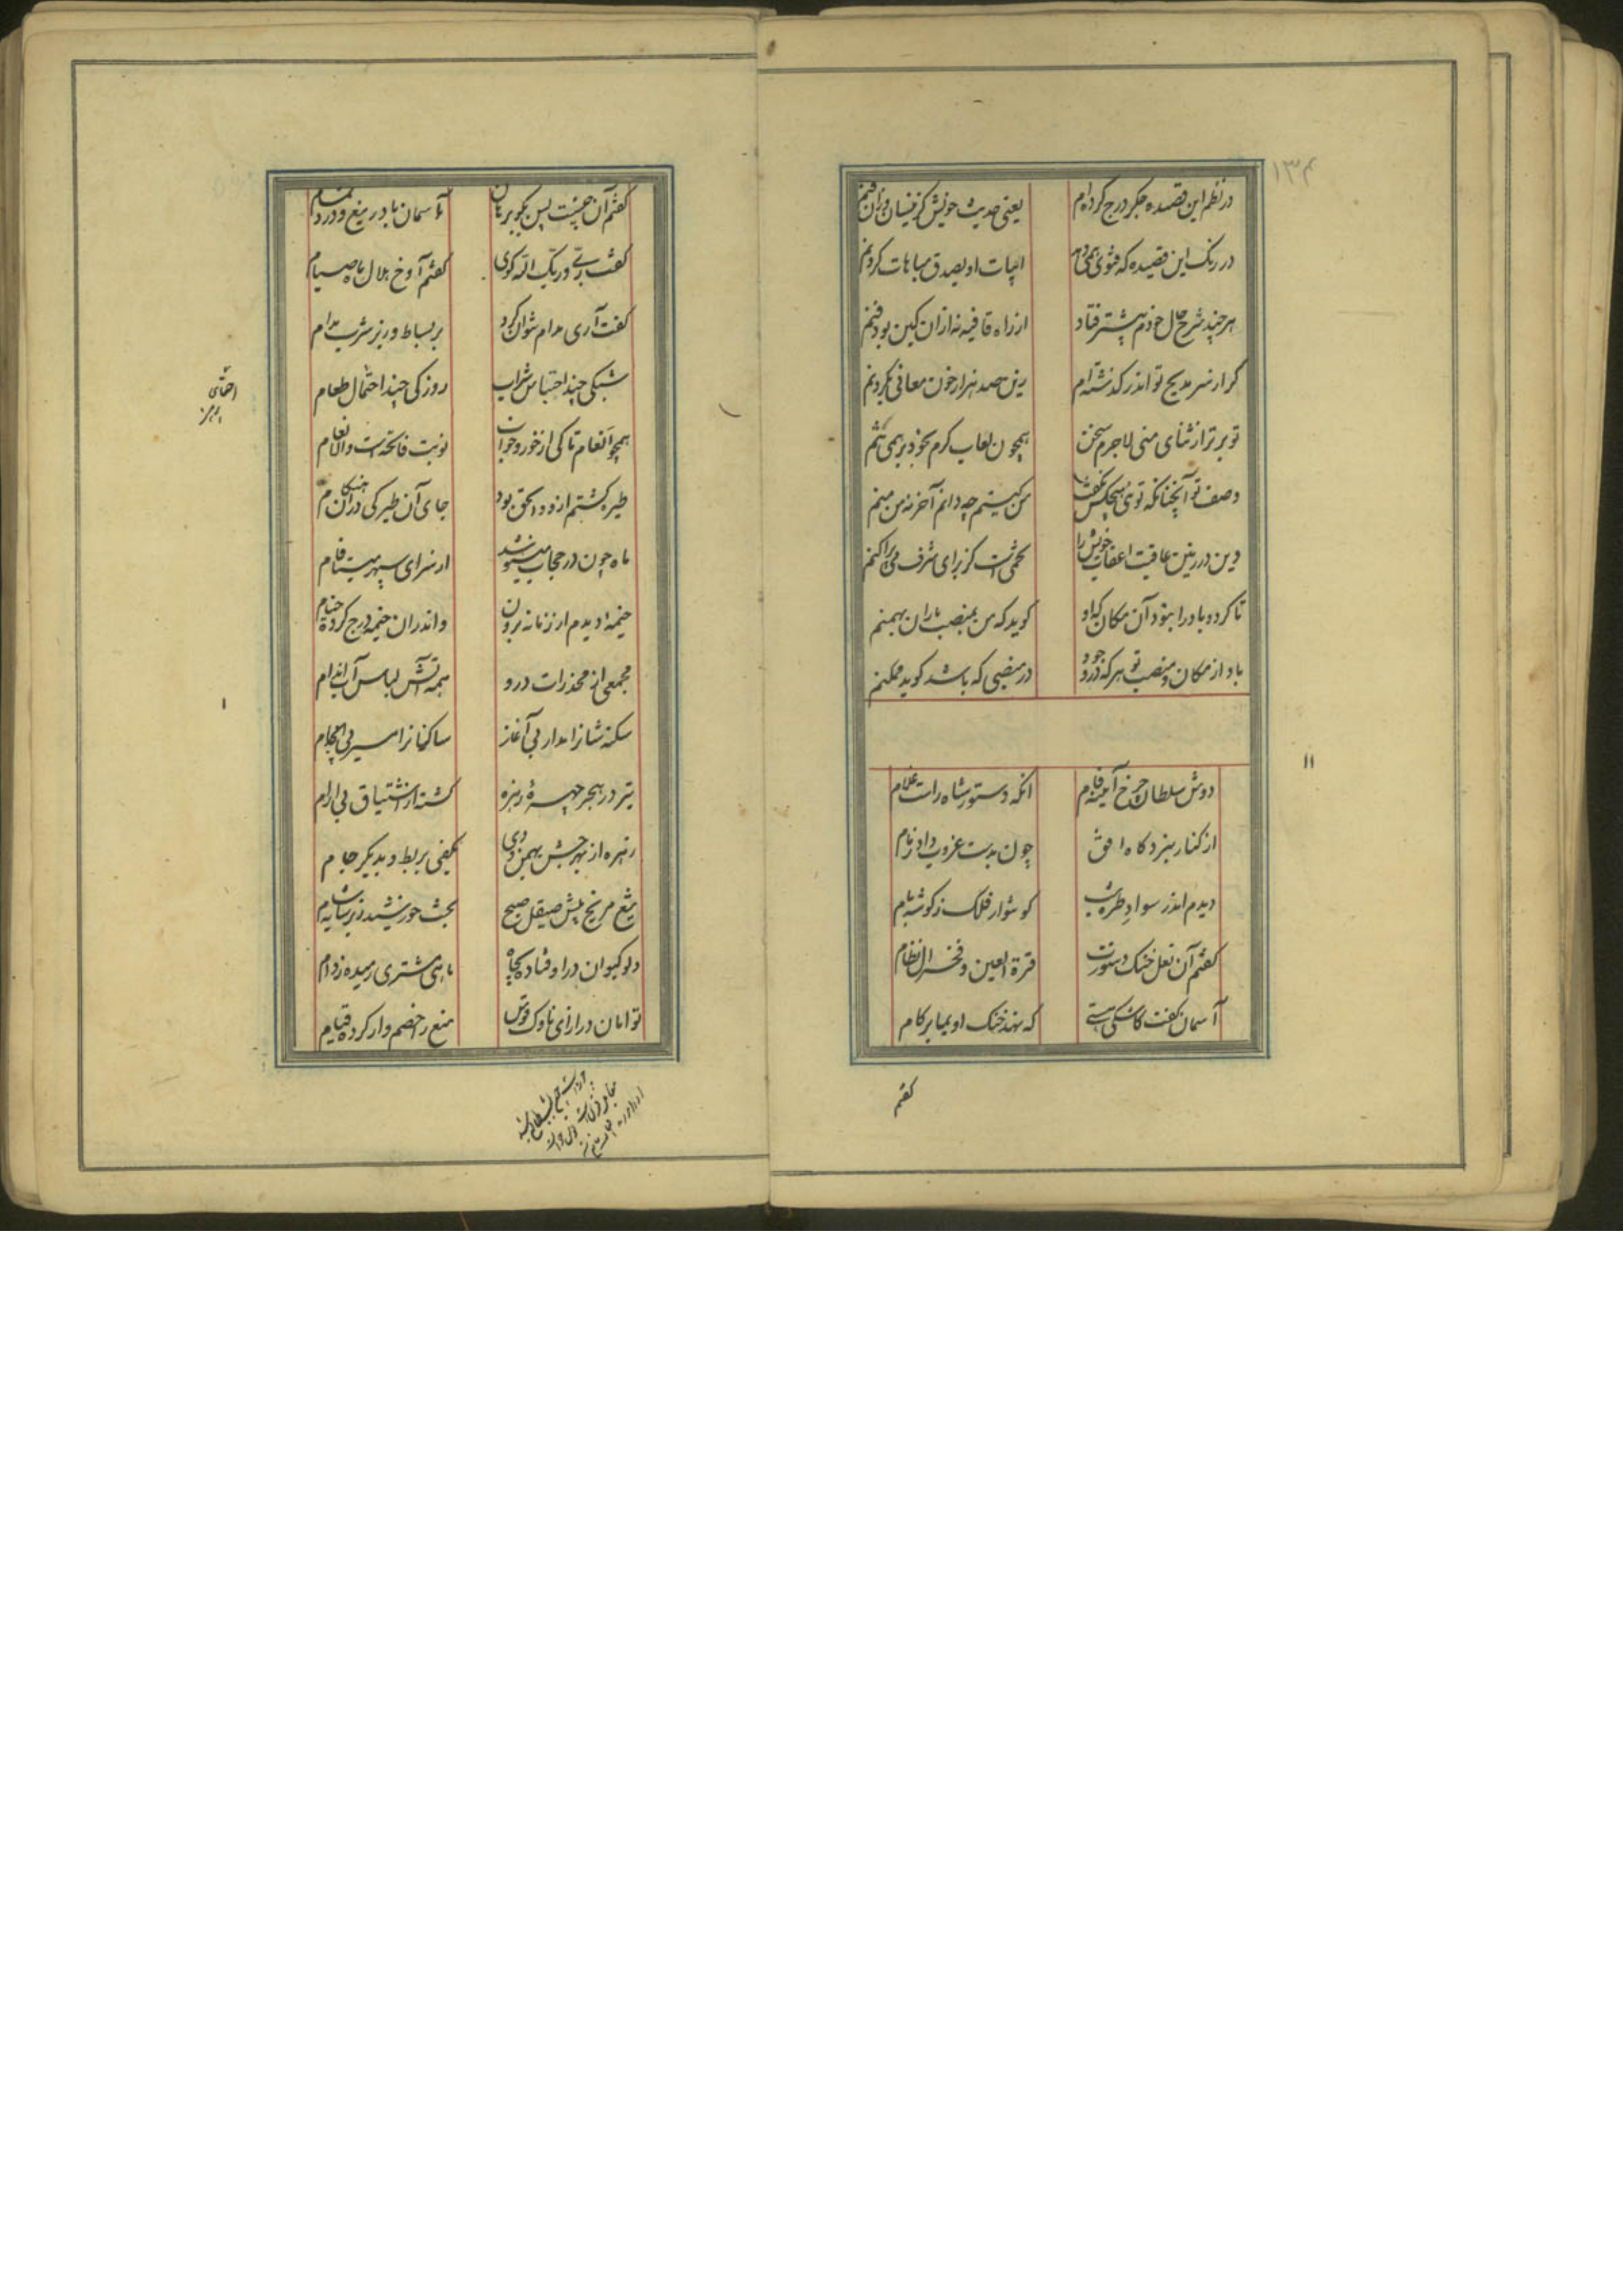 ۱۳۴
در نظم این قصیده جگر درج کرده‌ام یعنی حدیث خویش کز ینسان وزان فنم
در رنگ این قصیده که فتوی همی دهد ابیات او بصدق مباهات کردنم
هر چند شرح حال خودم بیشتر فتاد از راه قافیه نه ازان کین بود فنم
گر از سر مدیح تو اندر گذشته‌ام زین صد هزار خون معانی بگردنم
تو برتر از ثنای منی لاجرم سخن همچون لعاب کرم بخود بر همی تنم
وصف تو آنچنانکه توئی هیچکس نگفت من کیستم چه دانم آخر نه من منم
وین در زمین عاقبت اعقاب خویش را تخمی است کز برای شرف می‌پراکنم
تا گرد و باد را نبود آن مکان که او گوید که من بمنصب باران بهمنم
باد از مکان و منصب تو هر که در وجود در منصبی که باشد گوید ممکنم
دوش سلطان چرخ آینه فام انکه دستور شاه راست غلام
از کنار نبردگاه افق چون بدست غروب داد زمام
دیدم اندر سواد طره شب گوشوار فلک ز گوشه بام
گفتم آن نعل خنک دستورست قرة العین و فخر آل نظام
آسمان گفت کاشکی هستی که نهد خنک او بما بر گام
گفتم
گفتم آن چیست پس بگو برهان تا آسمان با دریغ و درد تمام
گفت ربی و ربک الله گوی گفتم آوخ هلال ماه صیام
گفت آری مدام نتوان کرد بر بساط وزیر شرب مدام
شبکی چند احتباس شراب روزکی چند احتمال طعام
همچو انعام تا کی از خور و خواب نوبت فاتحه است والانعام
طیره گشتم ازو و الحق بود جای آن طیرگی دران هنگام
ماه چون در حجاب میشد از سرای سپهر مینا فام
خیمه‌ا دیدم از زمانه برون و اندران خیمه درج کرده خیام
مجمعی از مخدرات درو همه آتش لباس آب اندام
سکنه شانرا مدار بی آغاز ساکنانرا مسیر بی انجام
تیر در هجر چهره زهره گشته از اشتیاق بی ارام
زهره از بهر جشن بهمن و دی بکفی بربط و بدیگر جام
تیغ مریخ پیش صیقل صبح تخت خورشید زیر سایه شام
دلو کیوان در او فتاده بچاه ماهی مشتری رمیده ز دام
توامان در ازای ناوک قوس منع را خصم وار کرده قیام